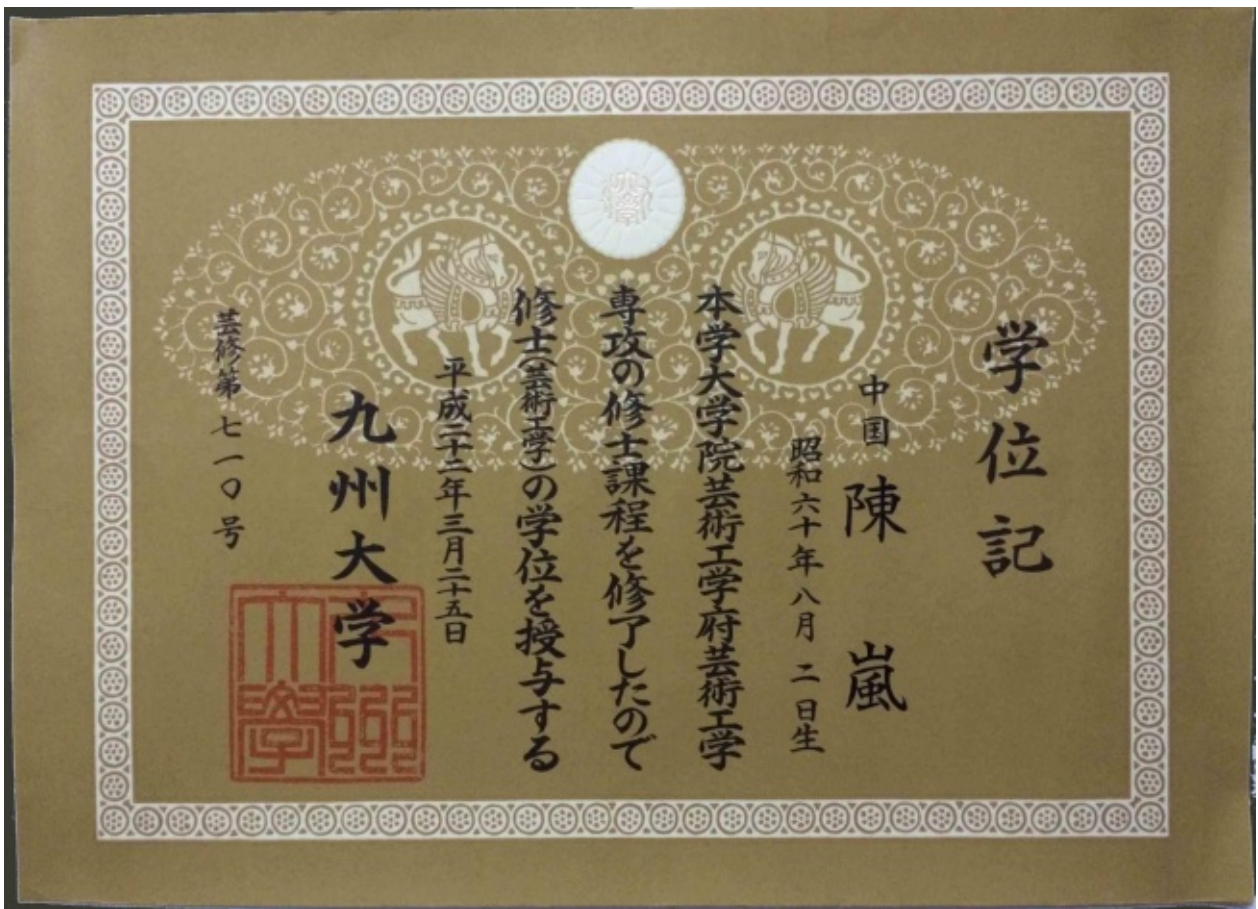 学位記
中国 陳 嵐
昭和六十年八月二日生
本学大学院芸術工学府芸術工学
専攻の修士課程を修了したので
修士(芸術工学)の学位を授与する
平成二十二年三月二十五日
九州大学
九州大學
芸修第七一〇号
大學